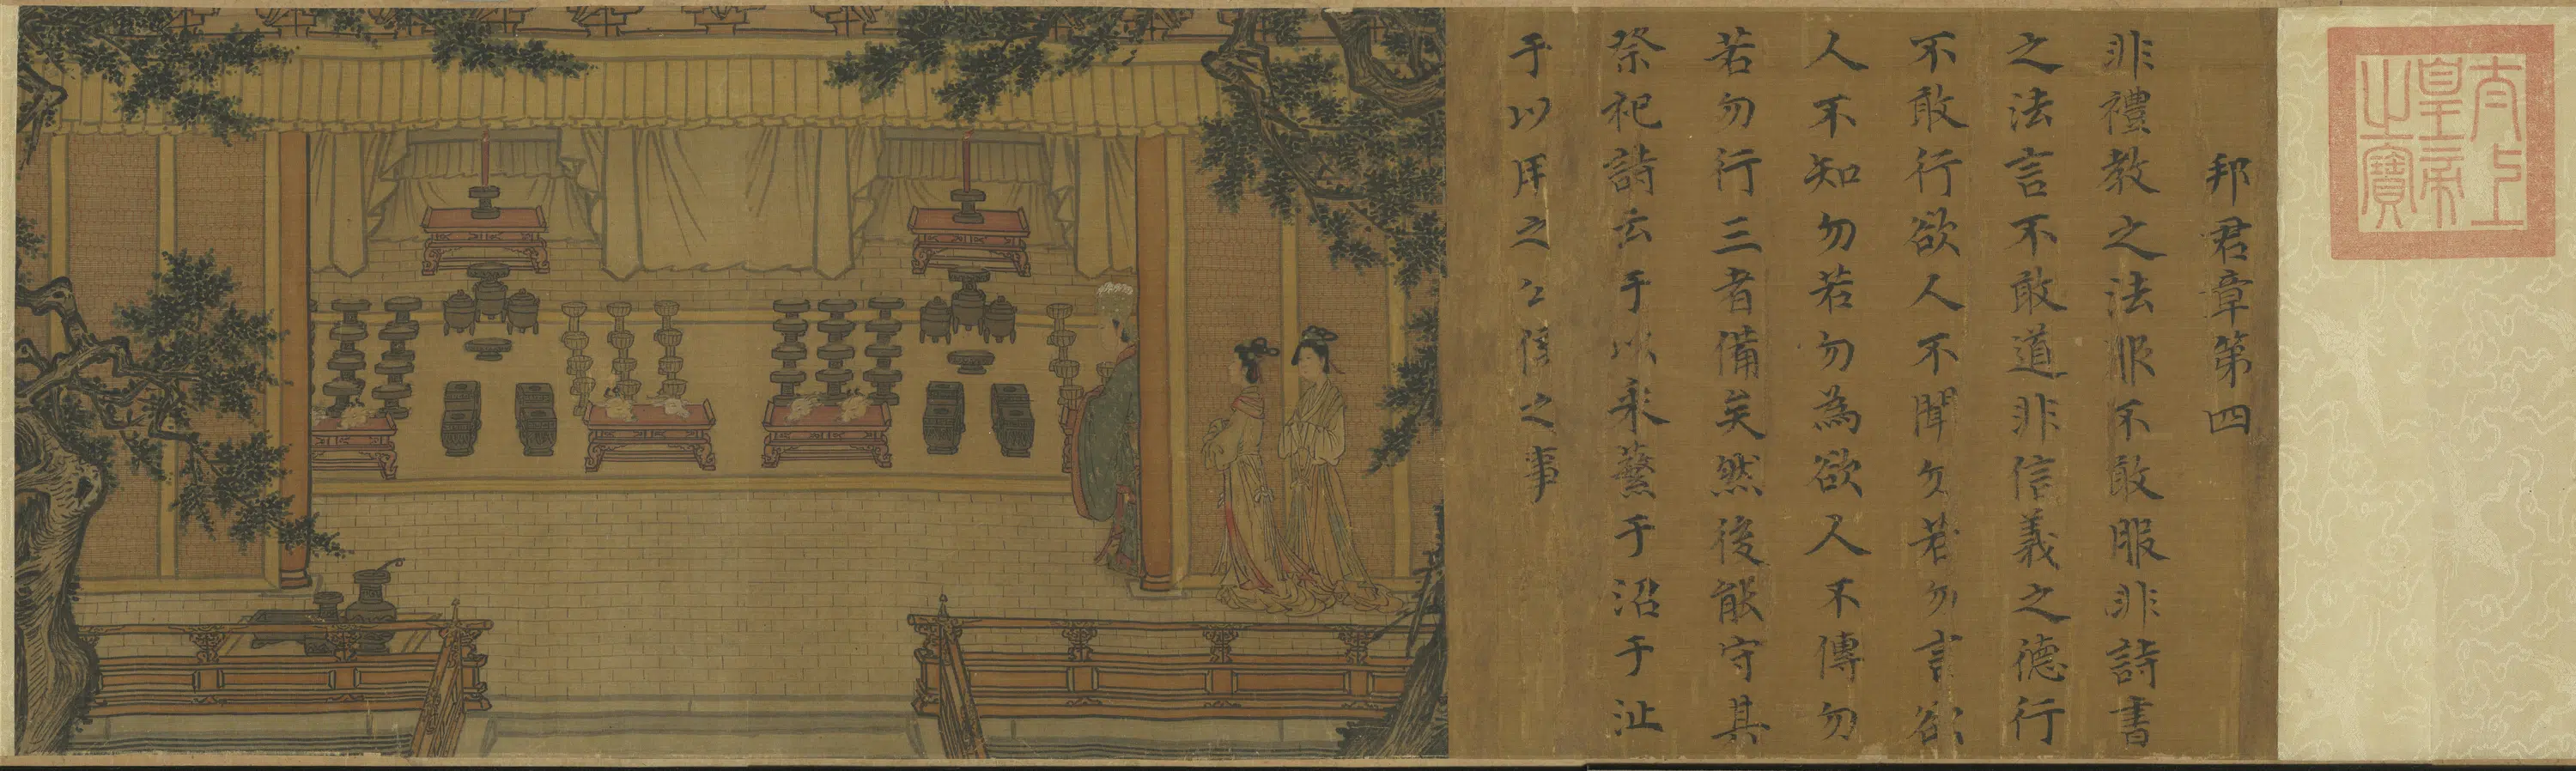 太上
皇帝
之寶
邦君章第四
非禮教之法服不敢服非詩書
之法言不敢道非信義之德行
不敢行欲人不聞勿若勿言欲
人不知勿若勿為欲人不傳勿
若勿行三者備矣然後能守其
祭祀詩云于以采蘩于沼于沚
于以用之公侯之事